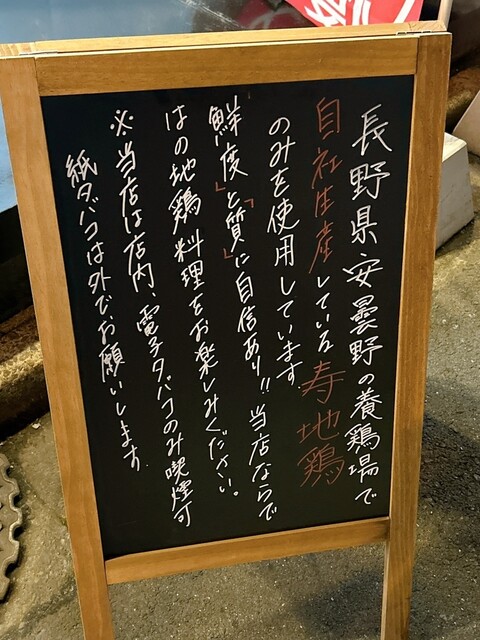 長野県安曇野の養鶏場で
自社生産している寿地鶏
のみを使用しています
「鮮度」と「質」に自信あり!!当店ならで
はの地鶏料理をお楽しみください。
※当店は店内、電子タバコのみ喫煙可
紙タバコは外でお願いします。